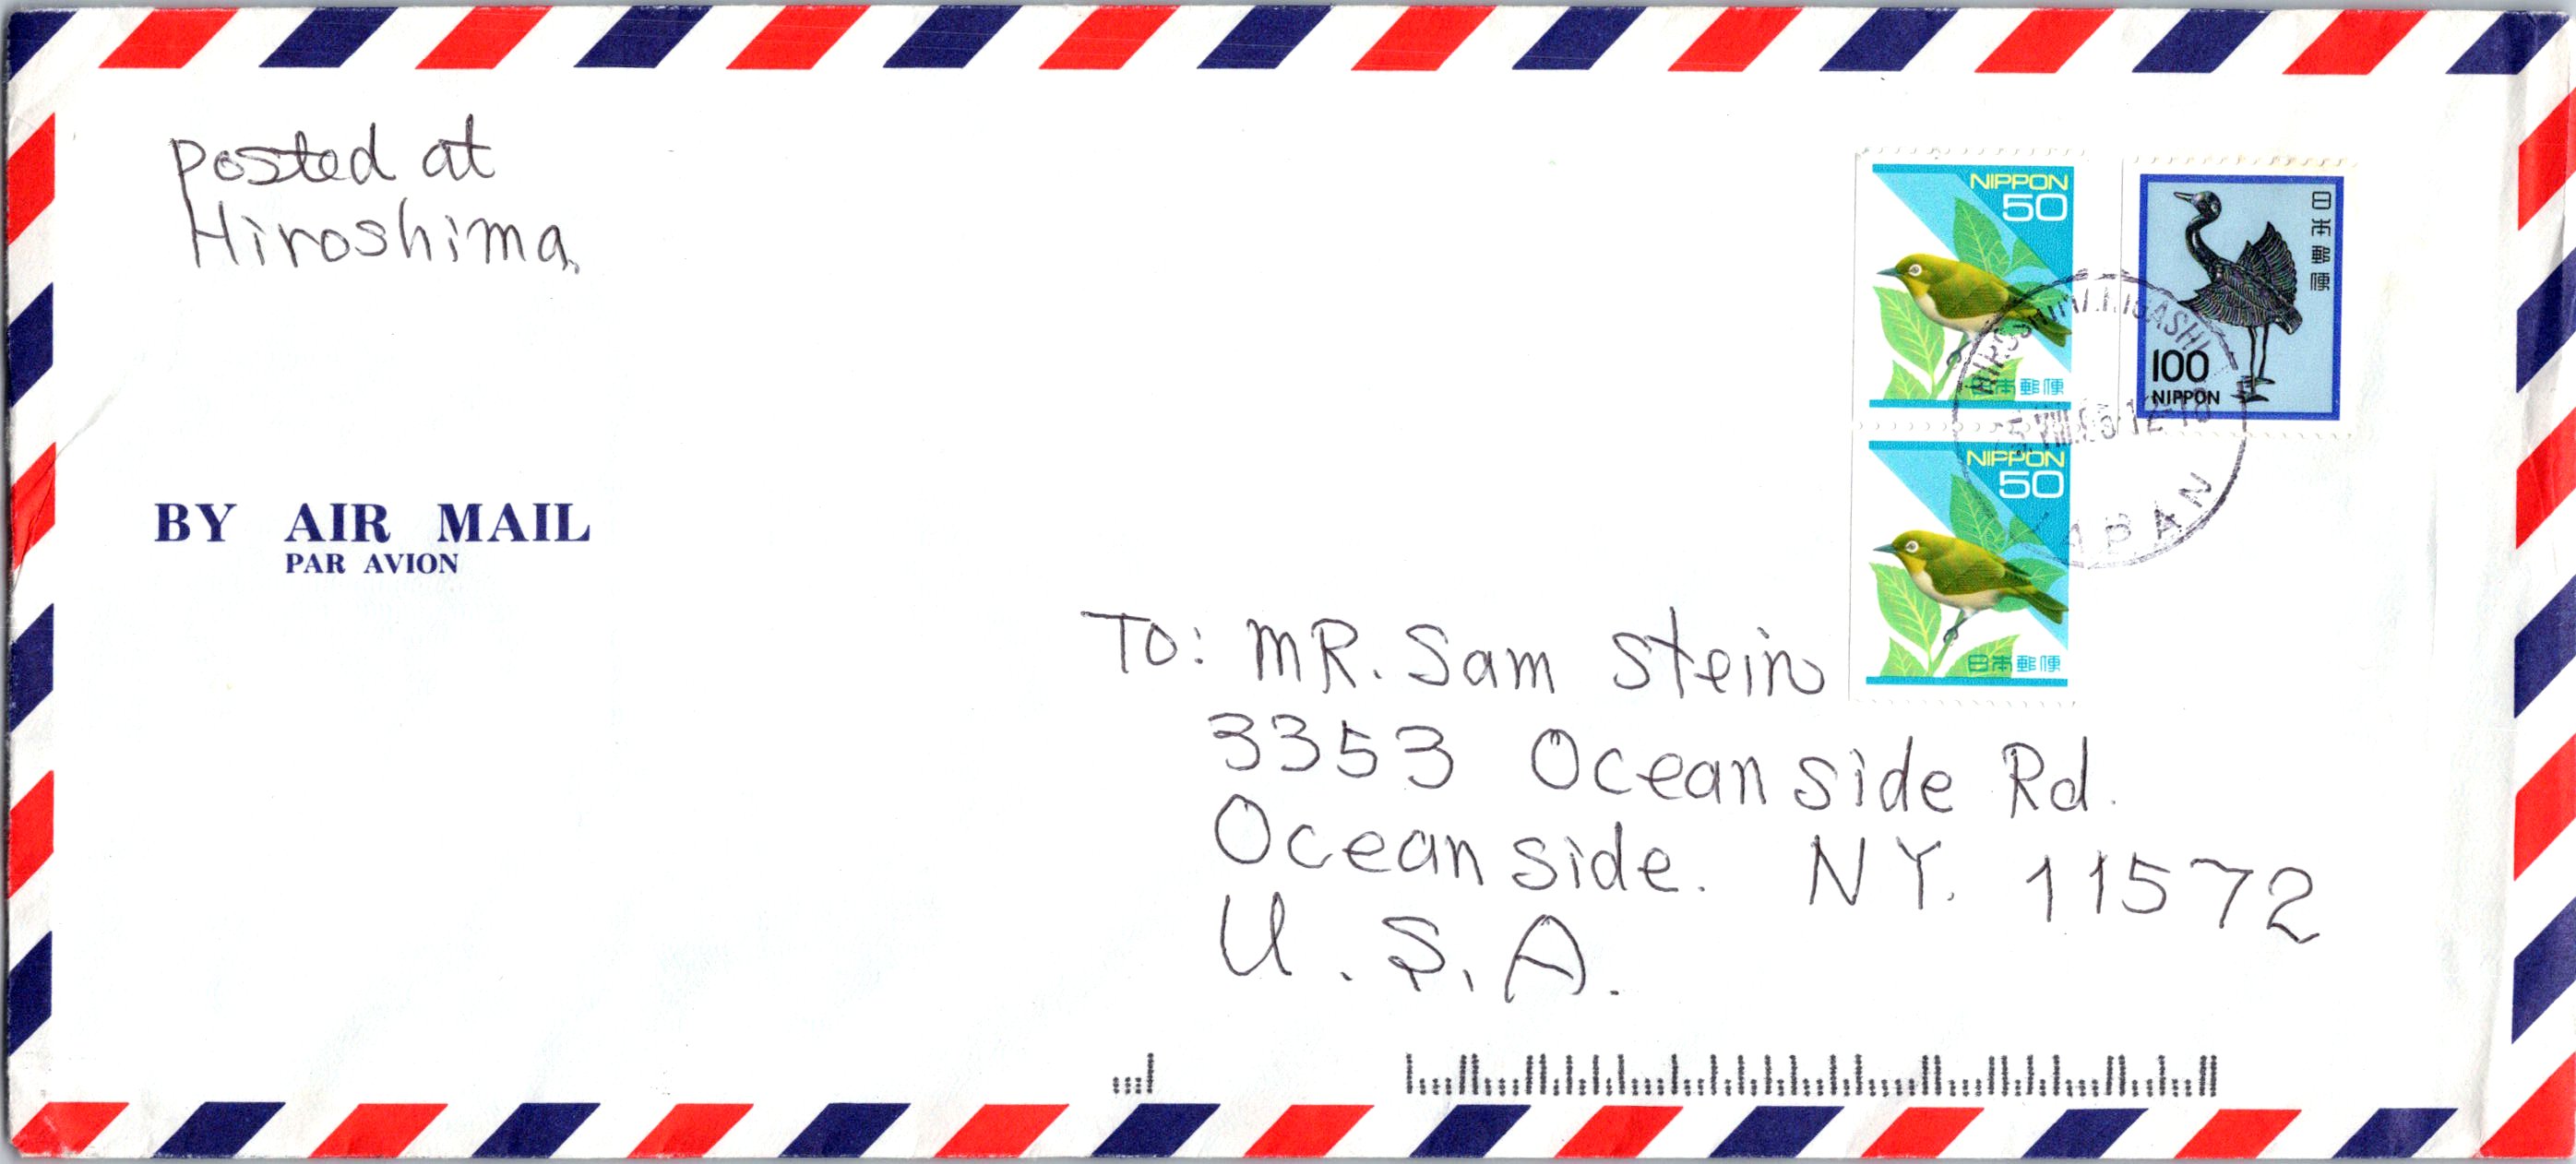 posted at
Hiroshima
BY AIR MAIL
PAR AVION
NIPPON
50
日本郵便
NIPPON
50
日本郵便
日本郵便
100
NIPPON
HIGASHI
JAPAN
To: MR. Sam Stein
3353 Oceanside Rd.
Oceanside. NY. 11572
U.S.A.